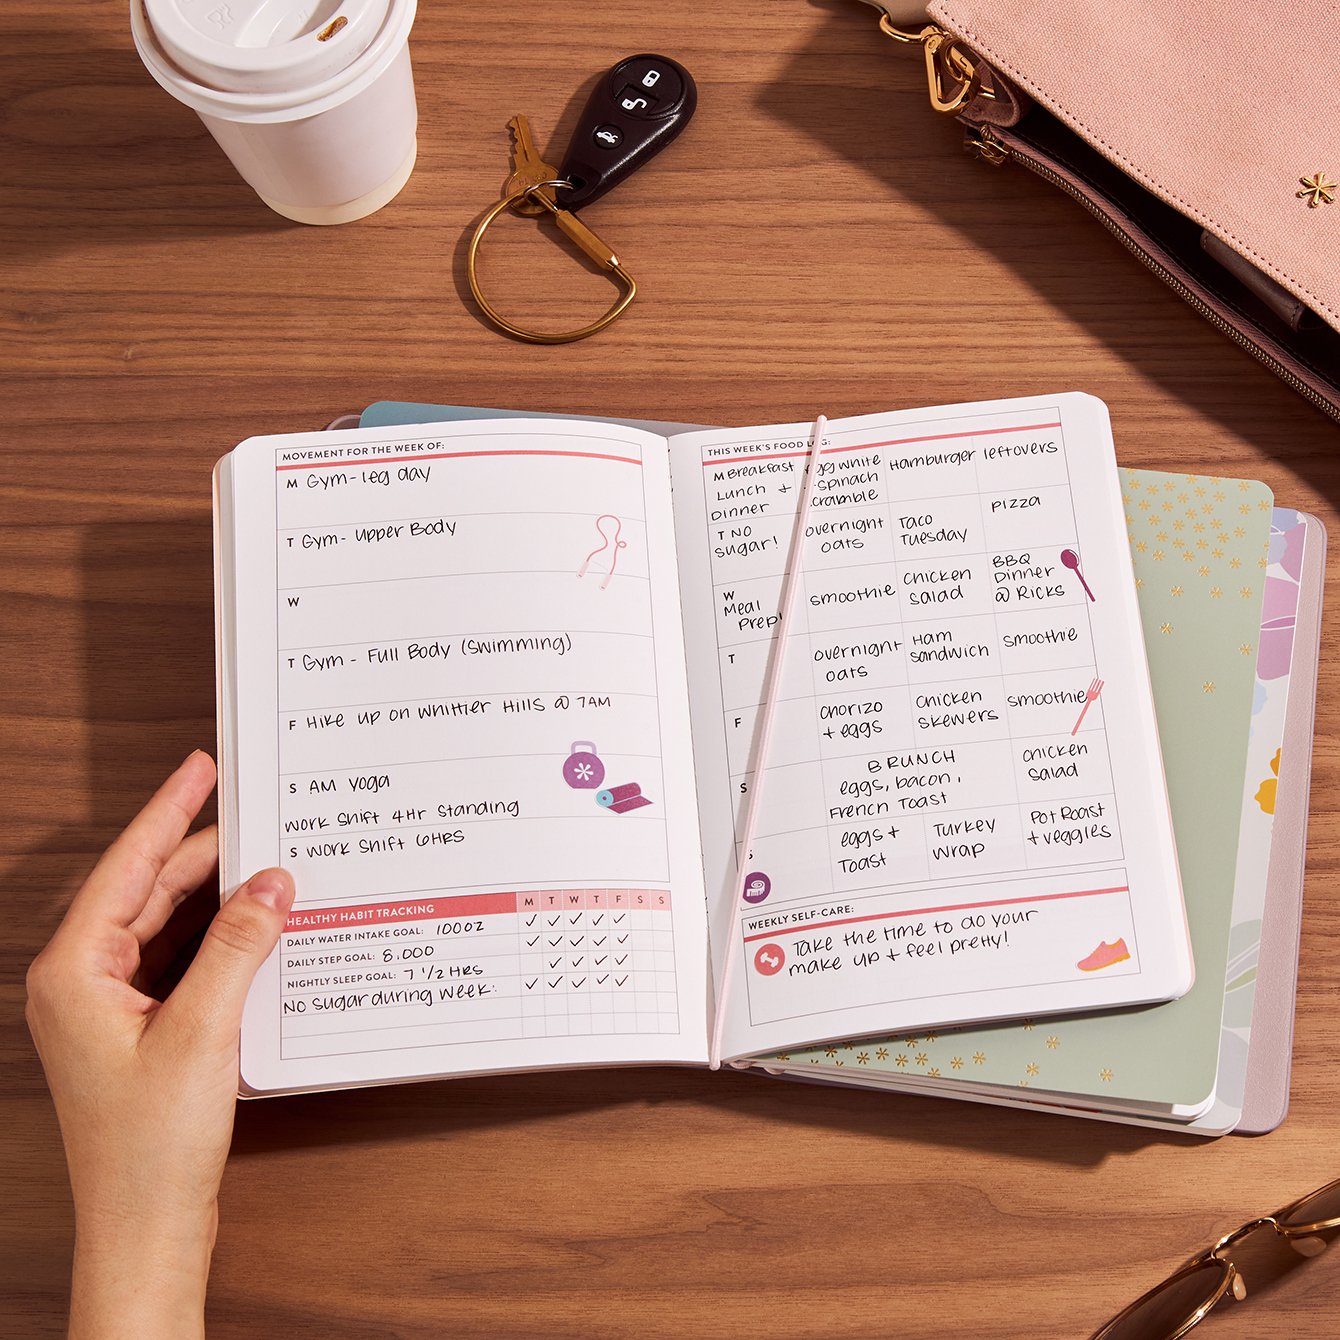 MOVEMENT FOR THE WEEK OF:
M Gym - leg day
T Gym - Upper Body
W
T Gym - Full Body (swimming)
F Hike up on Whittier Hills @ 7AM
S AM Yoga
Work Shift 4Hr Standing
S Work Shift 6HRS
HEALTHY HABIT TRACKING M T W T F S S
DAILY WATER INTAKE GOAL: 100oz
DAILY STEP GOAL: 8,000
NIGHTLY SLEEP GOAL: 7 1/2 HRS
No sugar during week:
THIS WEEK'S FOOD LOG:
M Breakfast
Lunch +
Dinner
Egg white
+ Spinach
scramble
Hamburger
leftovers
T No
sugar!
overnight
oats
Taco
Tuesday
pizza
W
Meal
Prep!
smoothie
chicken
salad
BBQ
Dinner
@ Ricks
T
overnight
oats
Ham
sandwich
smoothie
F
chorizo
+ eggs
chicken
skewers
smoothie
S
BRUNCH
eggs, bacon,
French Toast
chicken
salad
S
eggs +
Toast
Turkey
wrap
Pot Roast
+ veggies
WEEKLY SELF-CARE:
Take the time to do your
make up + feel pretty!